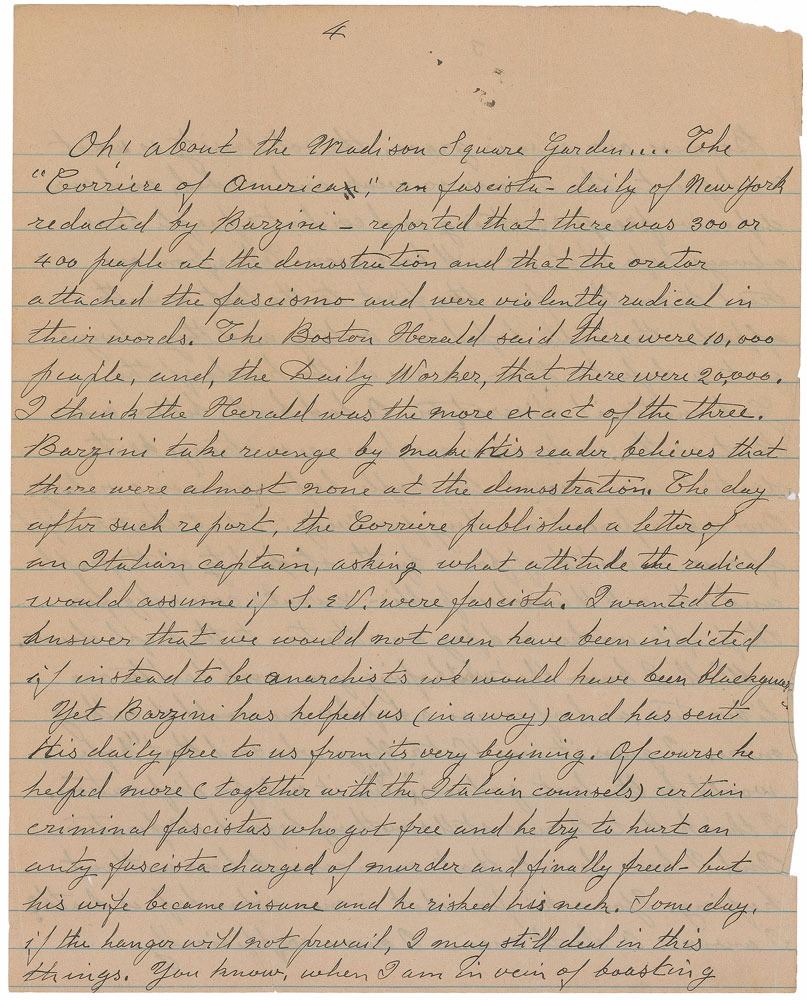 4
Oh! about the Madison Square Garden.... The
"Corriere of American", an fascista-daily of New York
redacted by Barzini - reported that there was 300 or
400 people at the demostration and that the orator
attached the fascismo and were violently radical in
their words. The Boston Herald said there were 10,000
people, and, the Daily Worker, that there were 20,000.
I think the Herald was the more exact of the three.
Barzini take revenge by make His reader believes that
there were almost none at the demostration. The day
after such report, the Corriere published a letter of
an Italian captain, asking what attitude the radical
would assume if S. & V. were fascista. I wanted to
answer that we would not even have been indicted
if instead to be anarchists we would have been blackguards
Yet Barzini has helped us (in a way) and has sent
His daily free to us from its very begining. Of course he
helped more (together with the Italian counsels) certain
criminal fascistas who got free and he try to hurt an
anty fascista charged of murder and finally freed - but
his wife became insane and he risked his neck. Some day,
if the hanger will not prevail, I may still deal in this
things. You know, when I am in vein of boasting